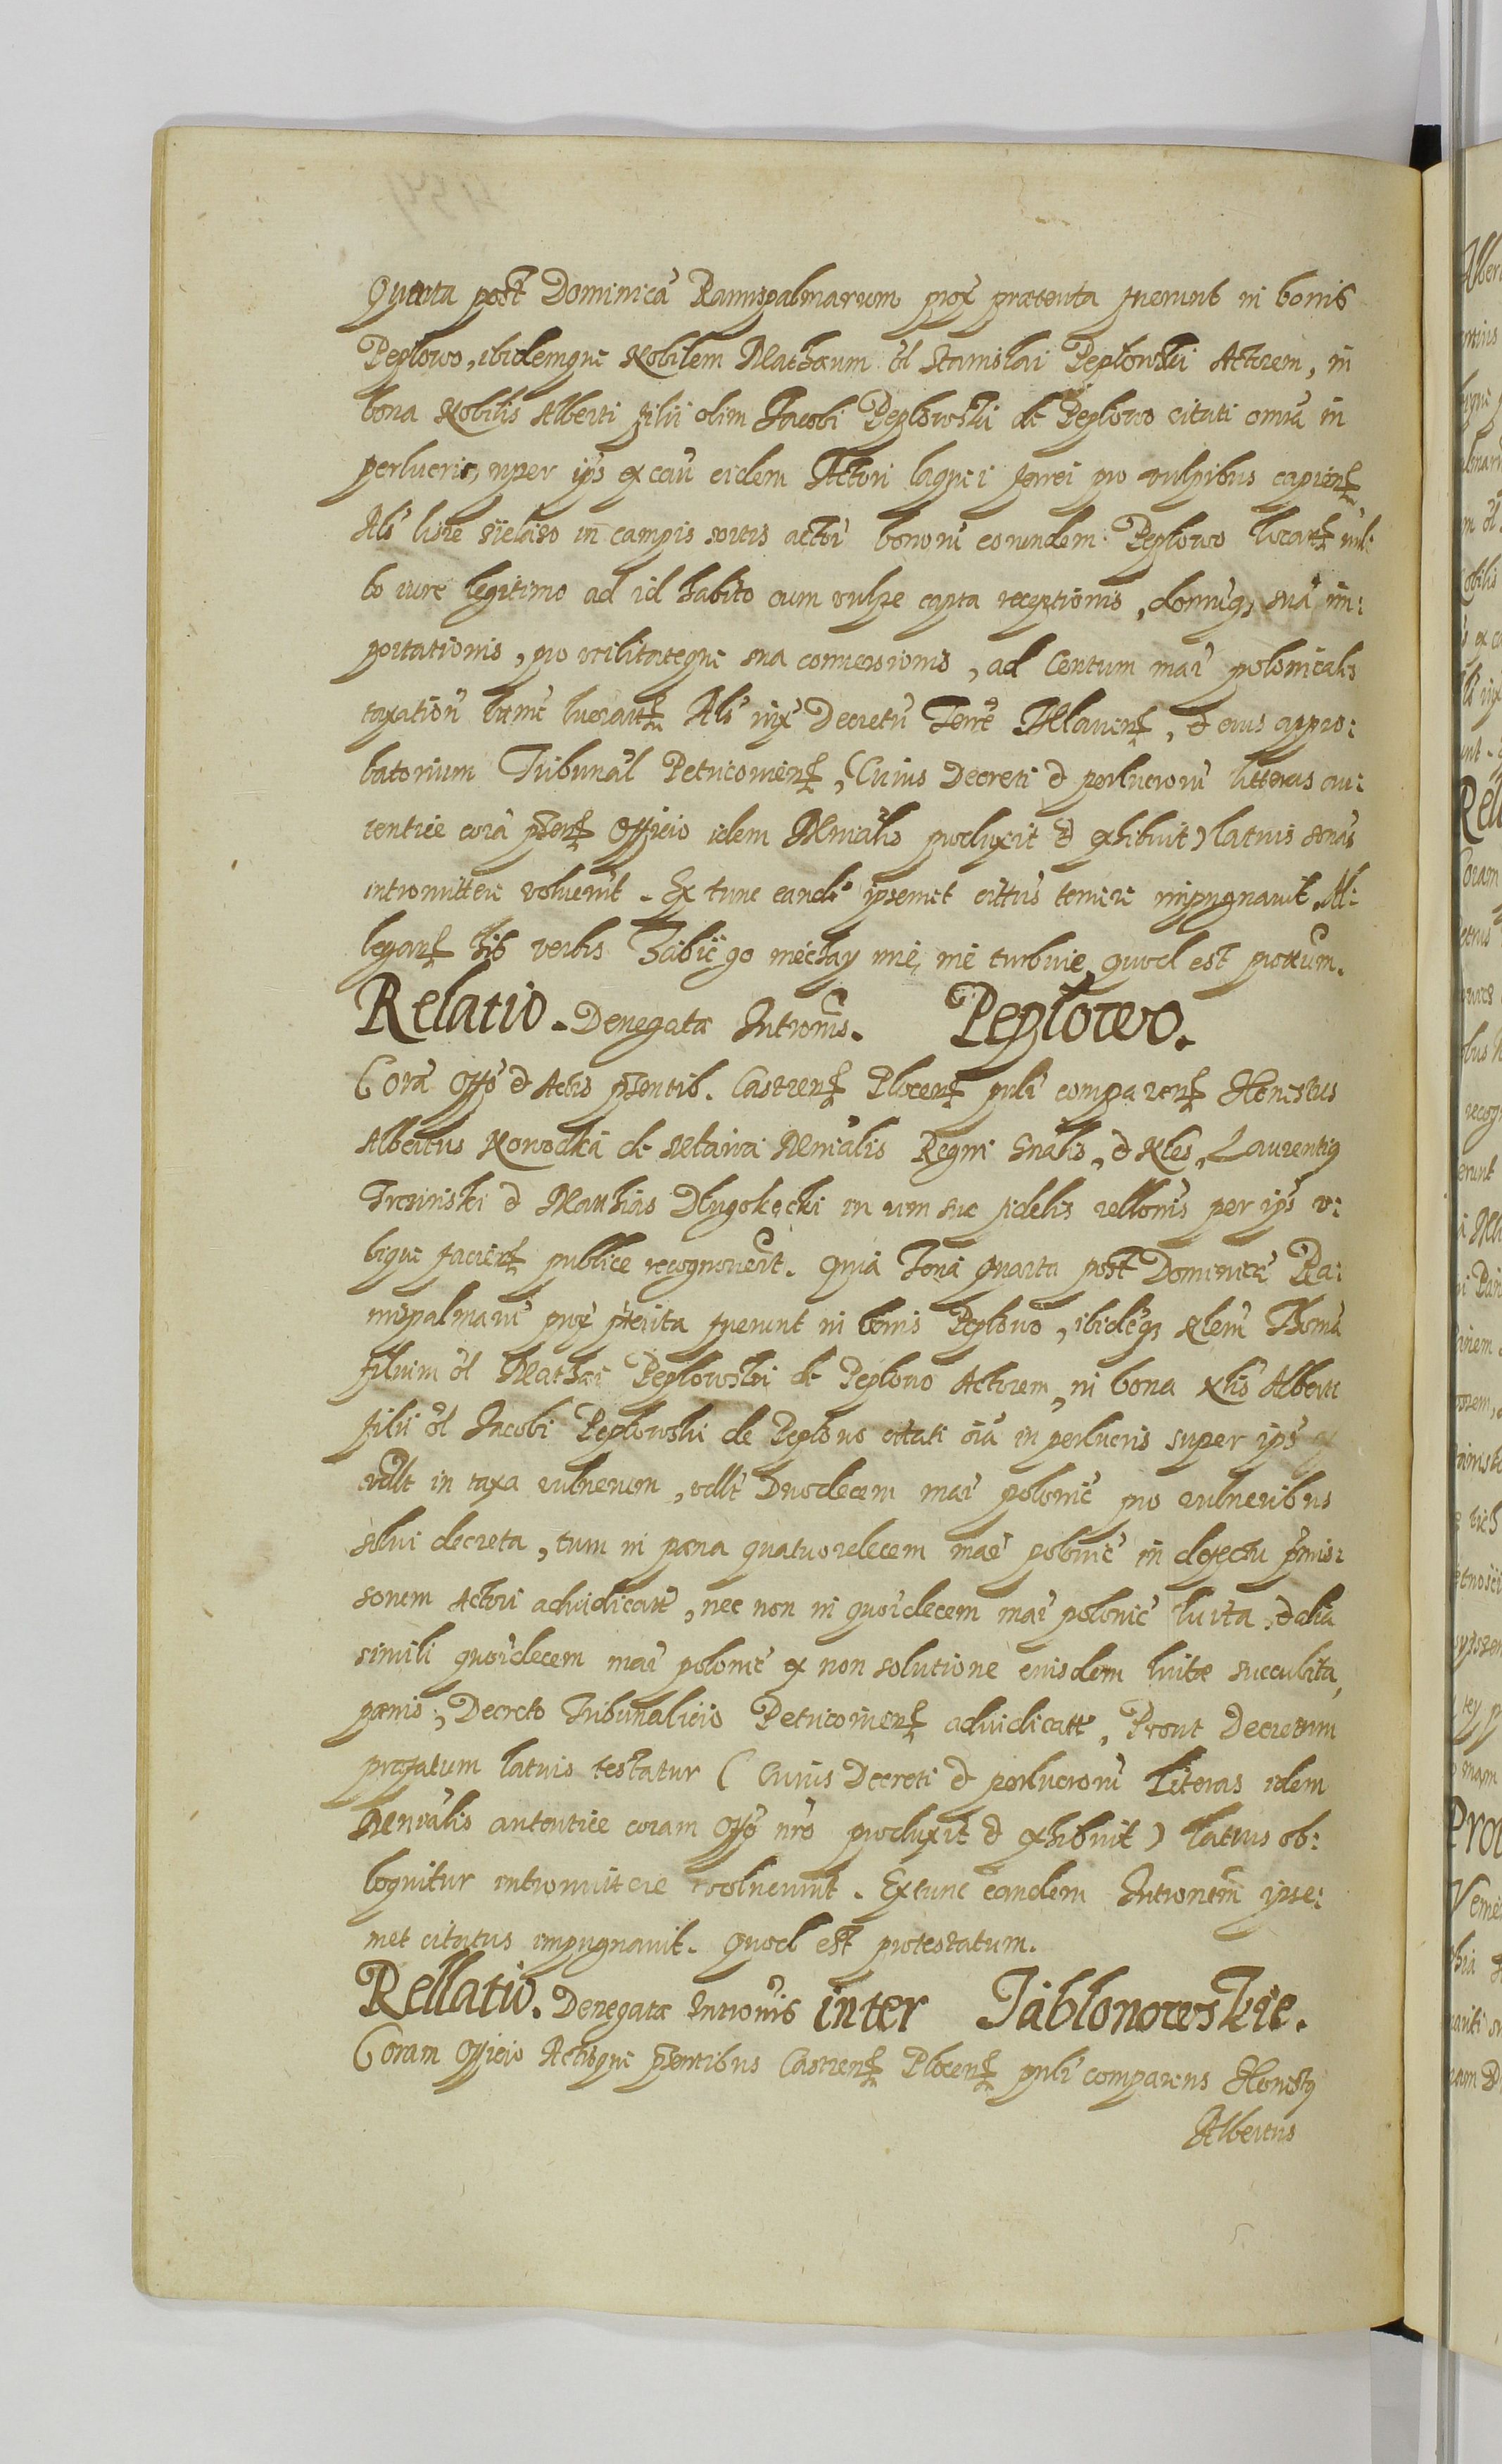 Quarta post Dominicā Ramispalmarum prox praeterita fuerunt in bonis
Peplowo, ibidemque Nobilem Mathaeum ōl Stanislai Peplowski Actorem, in
bona Nobilis Alberti filii olim Jacobi Peplowski de Peplowo citati omīa in
perlucris, super ip̄s ex cāu eidem Actori laquei ferrei pro vulpibus capien
Als lisie zielaso in campis sortis actoī bonorū eorundem Peplowo locat nul:
lo iure legitimo ad id habito cum vulpe capta receptionis, domūq; suā im:
portationis, pro utilitateque sua conversionis, ad Centum maī polonicales
taxation̄ lucrat Als iux Decretū Terre Mlaven, et eius appro:
batorium Tribunāl Petricovien, (Cuius Decreti et perlucrorū litteras au:
tentice corā pnt Officio idem Mniālis produxit et exhibuit) latius sonās
intromittere voluerūt. Ex tunc eandē ipsemet cittus temere impugnavit. Al:
legan his verbis Zabiięgo niechay mie, nie turbuie, quod est prottum.
Relatio. Denegatæ Intromis. Peplowo.
Corā Offō et Actis pntib. Castren Plocen pubī comparen Honestus
Albertus Nowodka de Mława Mnīalis Regni Gnālis, et Nles, Laurentiq
Trcinski et Mathias Długołęcki in vim suæ fidelis rellonis per ip̄s u:
bique facien publice recognoverūt. Quia Feria Quarta post Dominicā Ra:
mispalmarū prox pterita fuerunt in bonis Peplowo, ibidēq; Nlem̄ Thomā
filium ōl Mathæi Peplowski de Peplowo Actorem, in bona Nlis Alberti
filii ōl Jacobi Peplowski de Peplowo citati oīa in perlucris super ip̄s
vdlt in taxa vulnerum, vdlt Duodecem maī polonic̄ pro vulneribus
solui decreta, tum in pæna quatuordecem maī polonic̄ in defectu pmis:
sorum Actori adiudicatt, nec non in quōrdecem maī polonic̄ luita, et alia
simili quōrdecem maī polonic̄ ex non solutione eiusdem luitæ succubita,
pænis, Decreto Tribunalicio Petricovien adiudicatt, Prout Decretum
præfatum latius testatur (Cuius Decreti et perlucrorū Literas idem
Mnīalis autentice coram Offō nrō produxit et exhibuit) latius ob:
loquitur intromittere voluerunt. Extunc eandem Intronem̄ ipse:
met citatus impugnavit. Quod est protestatum.
Rellatio. Denegatæ Intromis inter Jabłonowskie.
Coram Officio Actisque pntibus Castren Plocen pubī comparens Honestq
Albertus